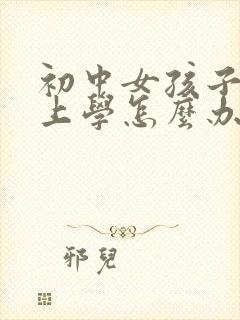 初中女孩子
上學怎麼办
邪兒